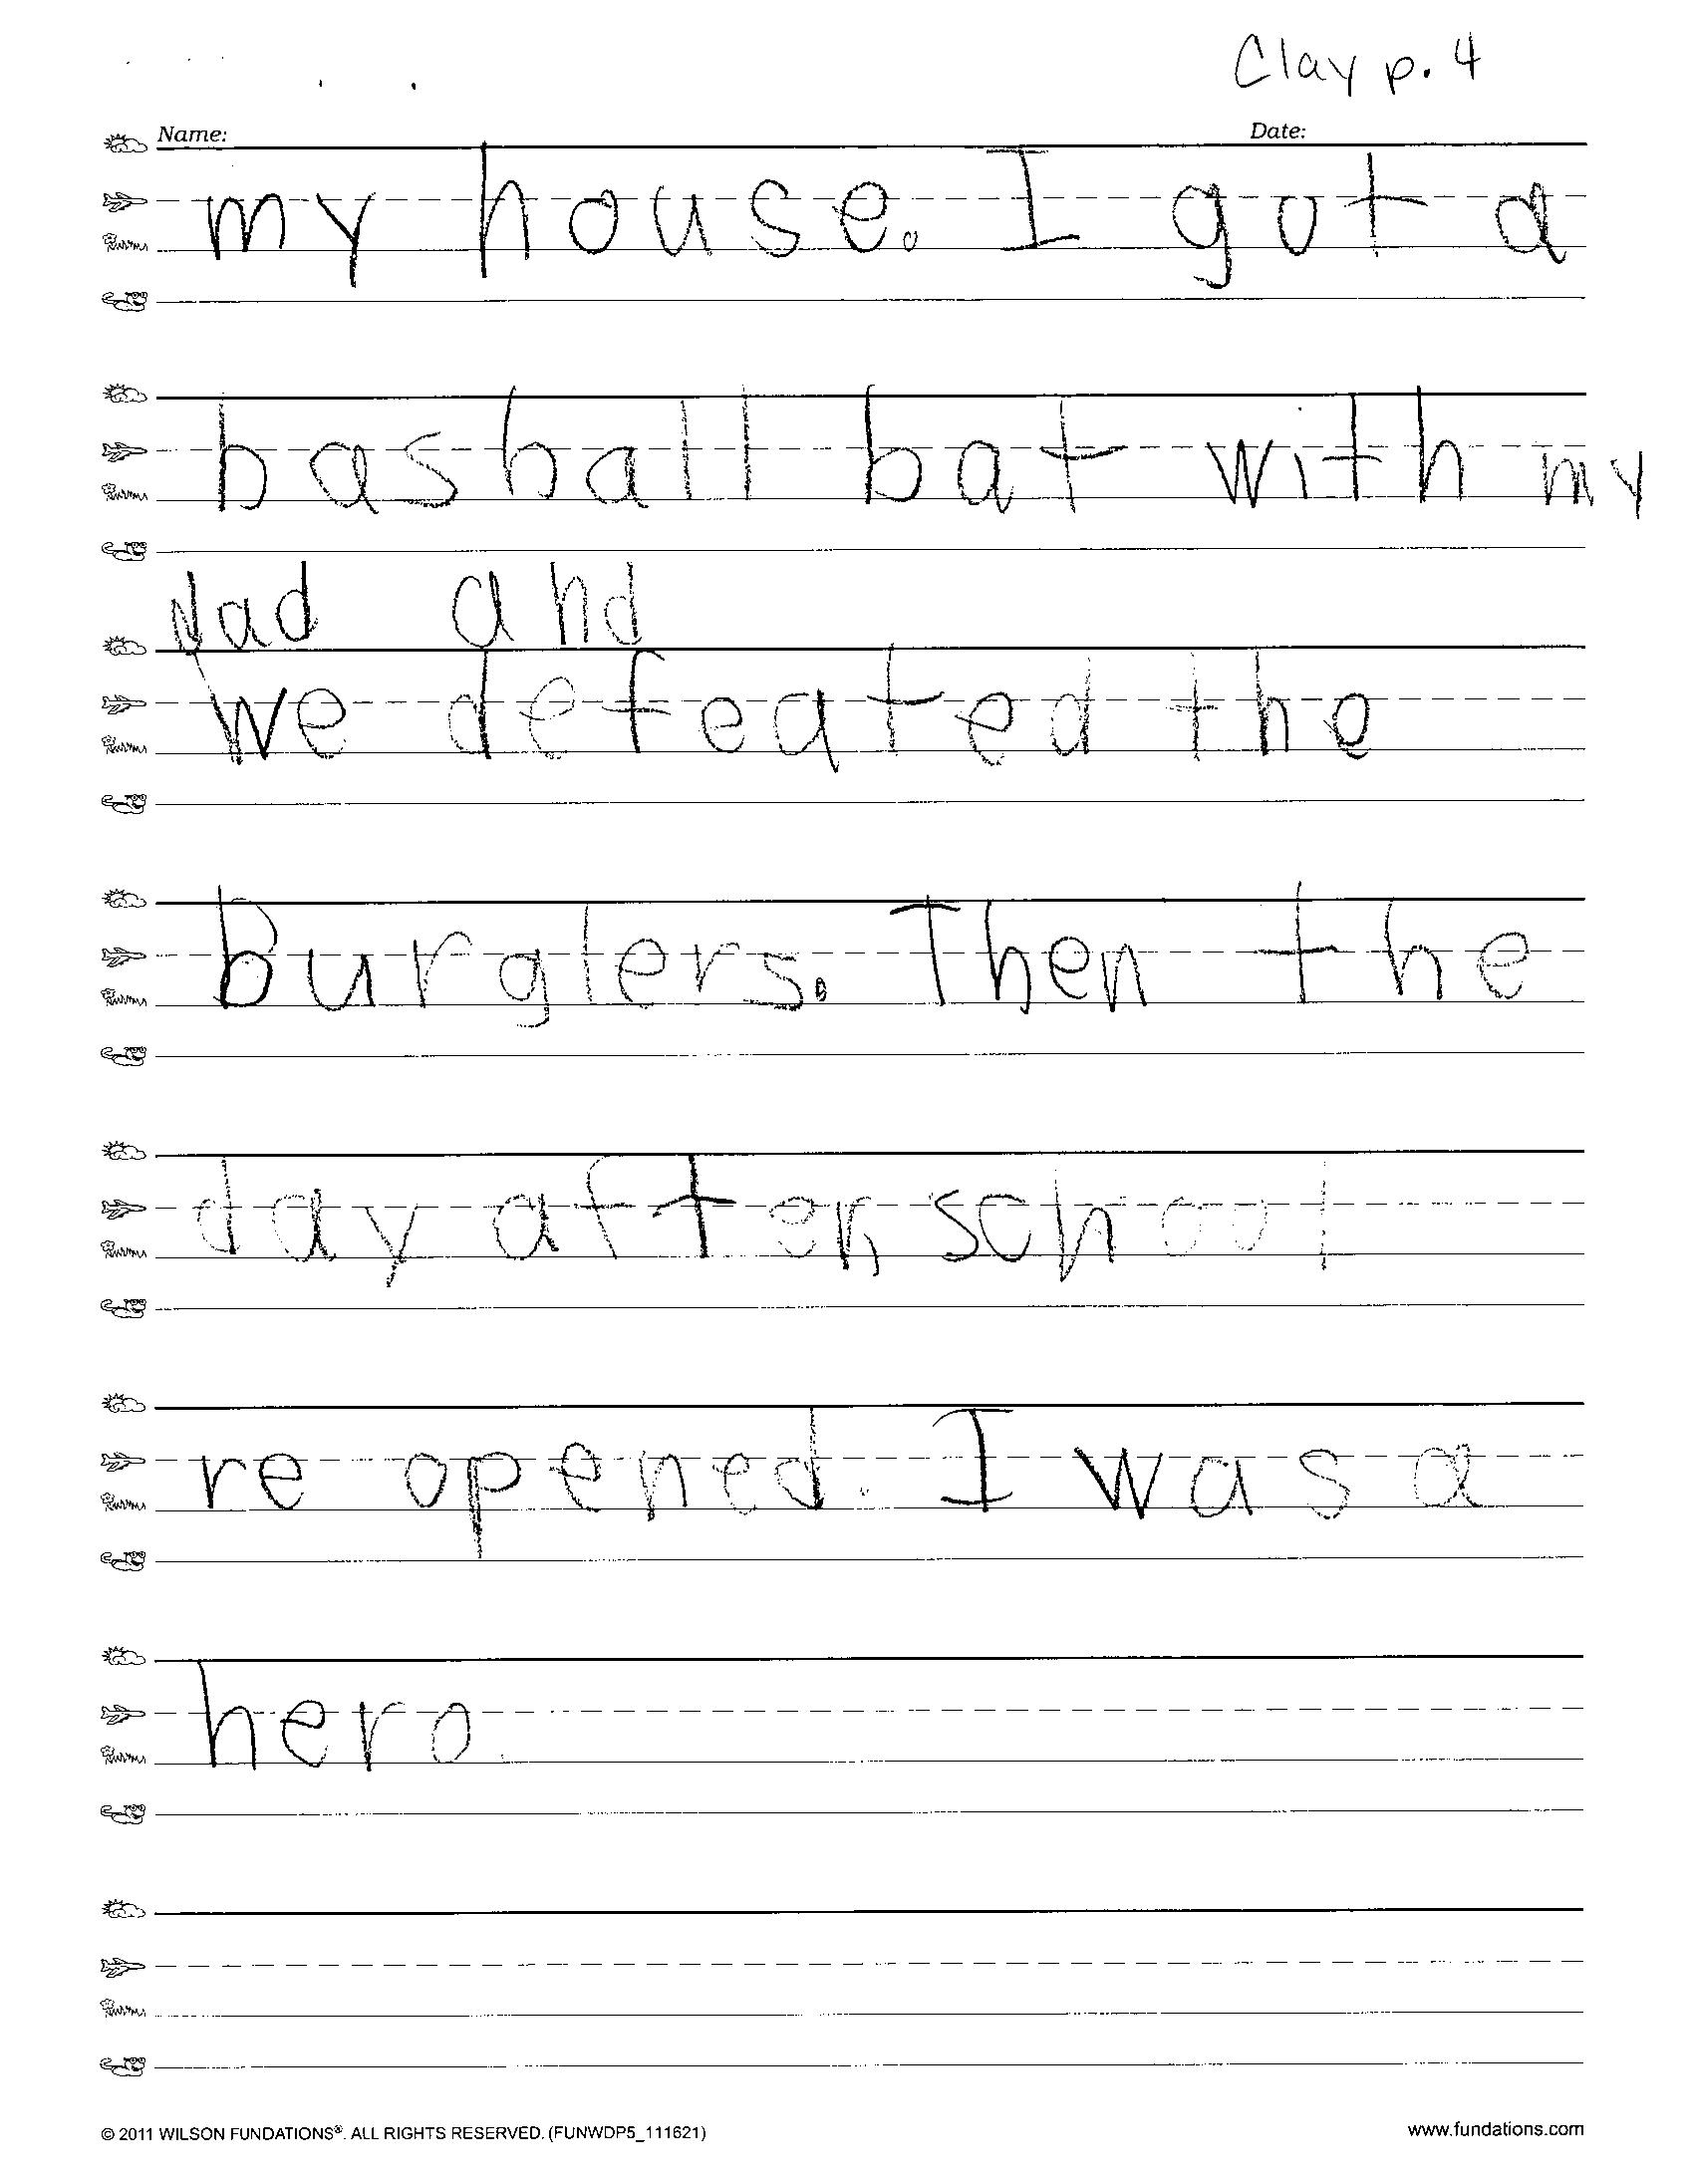 Clay p. 4
Name: Date:
my house. I got a
basball bat with my
dad and
we defeated the
Burglers. Then the
day after, school
re opened. I was a
hero
© 2011 WILSON FUNDATIONS®. ALL RIGHTS RESERVED. (FUNWDP5_111621) www.fundations.com